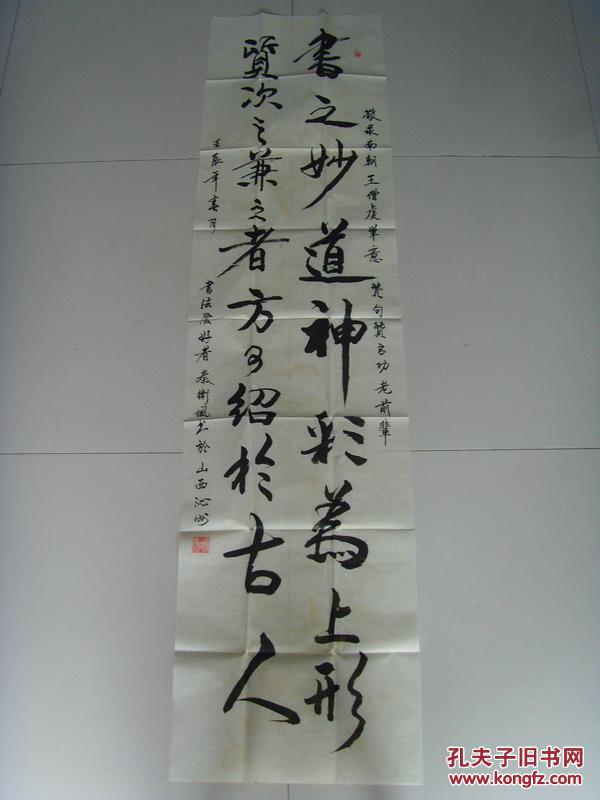 書之妙道神彩為上形
質次之兼之者方可紹於古人
敬录南朝王僧虔笔意赞句贊言功老前輩
壬辰年春月
書法爱好者秦衛風书於山西沁州
孔夫子旧书网
www.kongfz.com